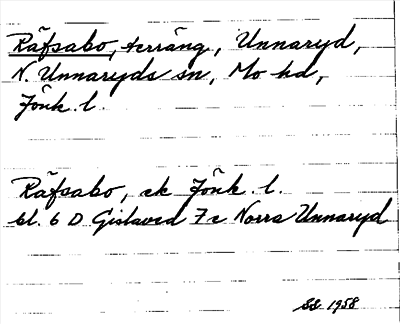 Räfsabo, terräng, Unnaryd,
N. Unnaryds sn, Mo hd,
Jönk. l.
Räfsabo, ek Jönk. l.
bl. 6 D Gislaved 7c Norra Unnaryd
SS 1958